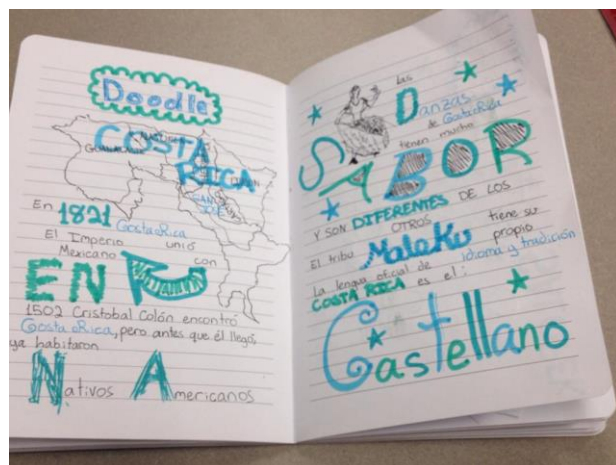 Doodle
COSTA
RICA
GUANACASTE
SAN
JOSÉ
En 1821 Costa Rica
El Imperio unió
Mexicano con
EN
1502 Cristobal Colón encontró
Costa Rica, pero antes que él llegó
ya habitaron
Nativos Americanos
Las
Danzas
de Costa Rica
tienen mucha
SABOR
Y SON DIFERENTES DE LOS
OTROS
El tribu Maleku tiene su
propio
idioma y tradición
La lengua oficial de
COSTA RICA es el:
Castellano